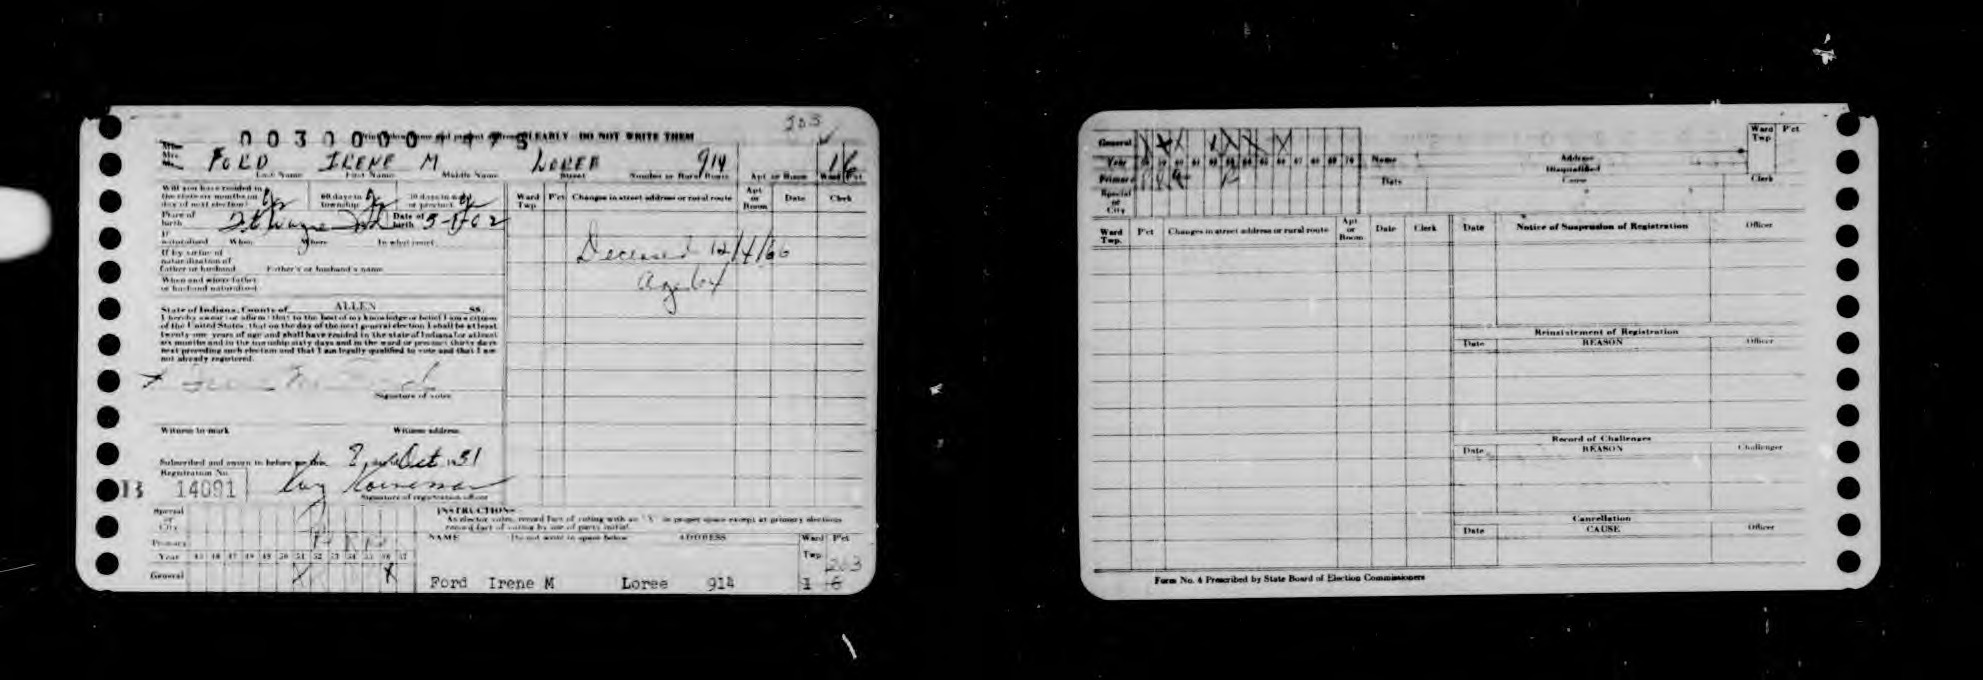 203
0030000475
CLEARLY DO NOT WRITE THEM
FORD IRENE M LOREE 914 1 6
Last Name First Name Middle Name Street Number or Rural Route Apt or Room Ward Pct
Will you have resided in
the state six months on 60 days in 30 days in ward
day of next election? township or precinct
Ward Twp. P'ct Changes in street address or rural route Apt or Room Date Clerk
Place of birth Ft Wayne Ind Date of birth 5-1-02
If
naturalized When Where In what court
If by virtue of
naturalization of
father or husband Father's or husband's name
When and where father
or husband naturalized
Deceased 12/4/66
Age 64
State of Indiana, County of ALLEN SS:
I hereby swear (or affirm) that to the best of my knowledge or belief I am a citizen
of the United States, that on the day of the next general election I shall be at least
twenty-one years of age and shall have resided in the state of Indiana for at least
six months and in the township sixty days and in the ward or precinct thirty days
next preceding such election and that I am legally qualified to vote and that I am
not already registered.
X Irene M. Ford
Signature of voter
Witness to mark Witness address
Subscribed and sworn to before me this 8 day of Oct 1951
Registration No.
14091
Signature of registration officer
INSTRUCTIONS
As elector votes, record fact of voting with an "X" in proper space except at primary elections
record fact of voting by use of party initial.
Special
or
City
Primary
Year 45 46 47 48 49 50 51 52 53 54 55 56 57
General X X
NAME Do not write in space below ADDRESS Ward Twp. P'ct
203
Ford Irene M Loree 914 1 6
General
Year 58 59 60 61 62 63 64 65 66 67 68 69 70 Name Address Ward Twp P'ct
Primary Disqualified
Special Date Cause Clerk
or
City
Ward Twp. P'ct Changes in street address or rural route Apt or Room Date Clerk Date Notice of Suspension of Registration Officer
Reinstatement of Registration
Date REASON Officer
Record of Challenges
Date REASON Challenger
Cancellation
Date CAUSE Officer
Form No. 4 Prescribed by State Board of Election Commissioners